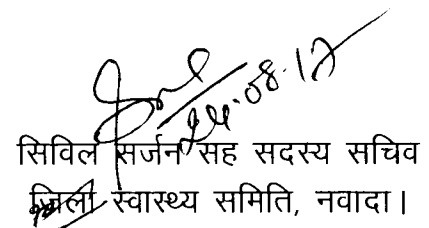 24.08.17
सिविल सर्जन सह सदस्य सचिव
जिला स्वास्थ्य समिति, नवादा।